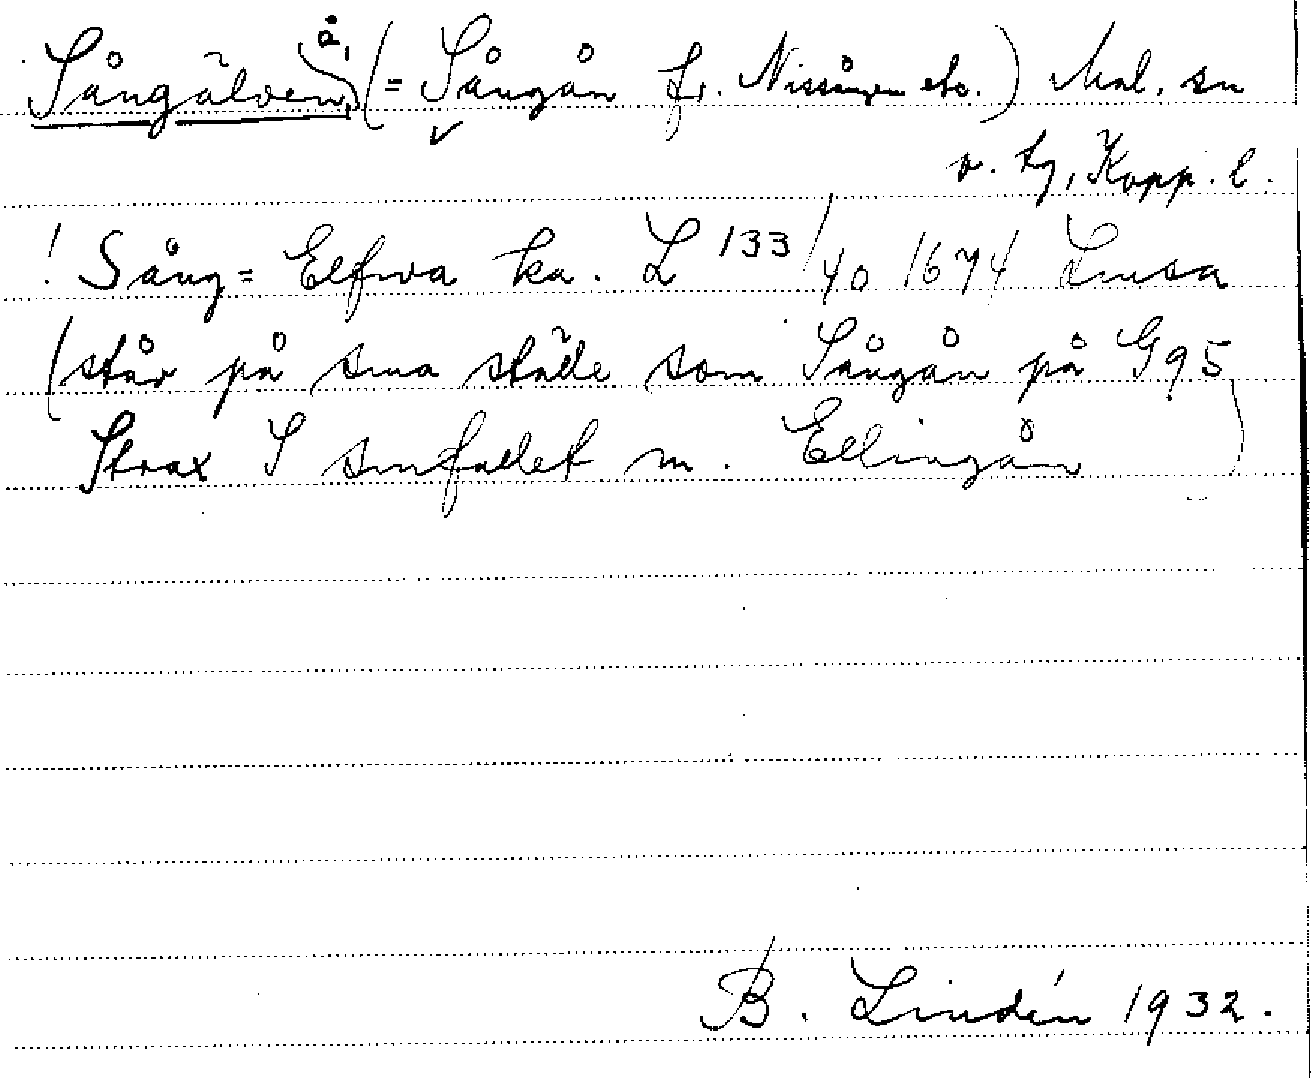 Sångälven, å, (= Sångån fr. Nissången etc.) Mal. sn
v. hg, Kopp. l.
! Sång= Elfwa ka. L 133/40 1674 Limsa
(står på sma ställe som Sångån på G95
Strax S smfallet m. Ellingån )
B. Lindén 1932.